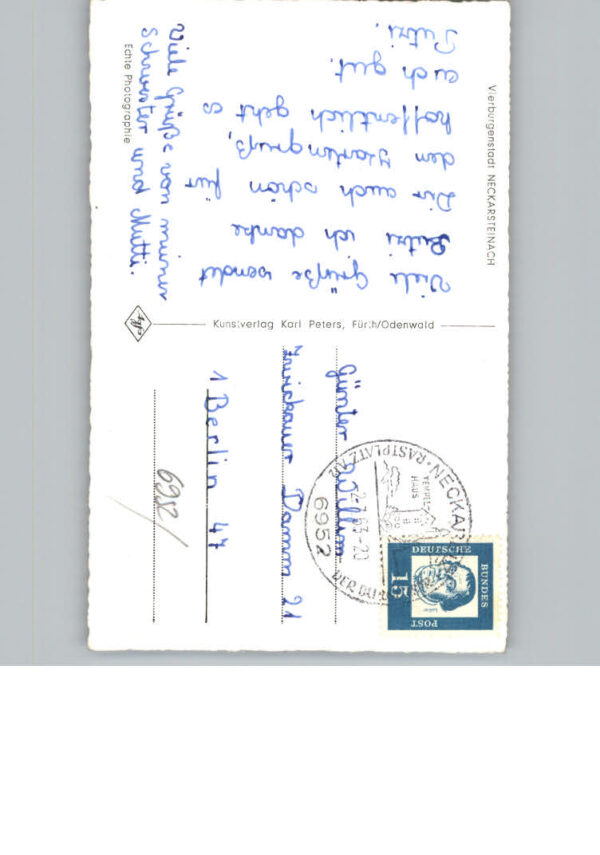 Vierburgenstadt NECKARSTEINACH
Viele Grüße sendet
Putzi ich danke
Dir auch schön für
den Kartengruß,
hoffentlich geht es
auch gut.
Putzi.
Viele Grüße von meiner
Schwester und Mutti.
Echte Photographie
Agfa
Kunstverlag Karl Peters, Fürth/Odenwald
Günter
Zwickauer Damm 21
1 Berlin 47
6952/
NECKAR
RASTPLATZ AM
6952
-7.63-20
TEMPEL
HAUS
DEUTSCHE
BUNDES
POST
15
Luther